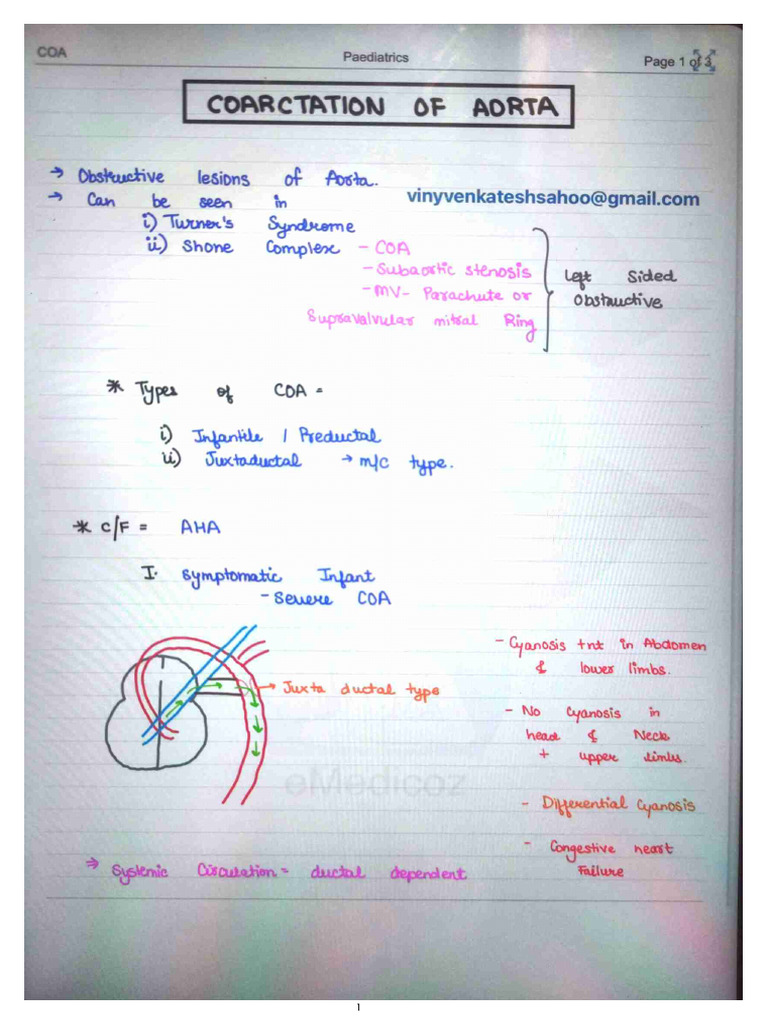 COA
Paediatrics
Page 1 of 3
COARCTATION OF AORTA
→ Obstructive lesions of Aorta.
→ Can be seen in
vinyvenkateshsahoo@gmail.com
i) Turner's Syndrome
ii) Shone Complex - COA
- Subaortic stenosis
- MV- Parachute or
Supravalvular mitral Ring
Left Sided
Obstructive
* Types of COA =
i) Infantile / Preductal
ii) Juxtaductal → m/c type.
* C/F = AHA
I. Symptomatic Infant
- Severe COA
→ Juxta ductal type
- Cyanosis +nt in Abdomen
& lower limbs.
- No Cyanosis in
head & Neck
+ upper limbs.
- Differential Cyanosis
- Congestive heart
Failure
eMedicoz
⇒ Systemic Circulation = ductal dependent
1